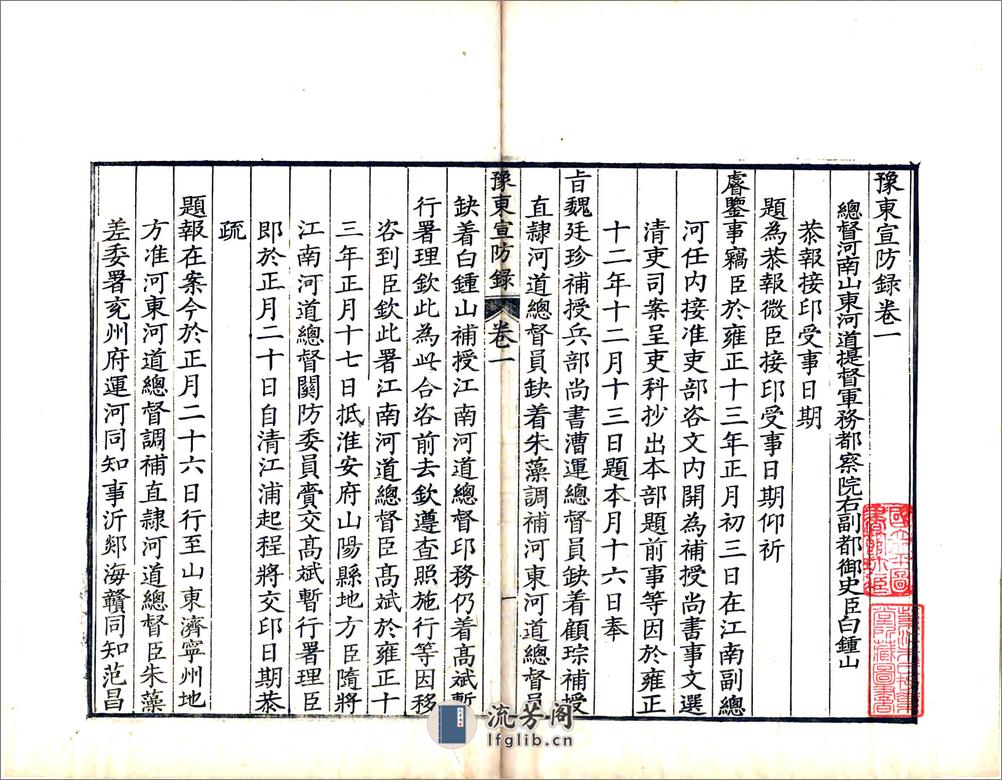 豫東宣防録卷一
總督河南山東河道提督軍務都察院右副都御史臣白鍾山
恭報接印受事日期
題為恭報微臣接印受事日期仰祈
睿鑒事竊臣於雍正十三年正月初三日在江南副總
河任内接准吏部咨文内開為補授尚書事文選
清吏司案呈吏科抄出本部題前事等因於雍正
十二年十二月十三日題本月十六日奉
旨魏廷珍補授兵部尚書漕運總督員缺着顧琮補授
直隷河道總督員缺着朱藻調補河東河道總督員
豫東宣防錄 卷一 一
缺着白鍾山補授江南河道總督印務仍着高斌暫
行署理欽此為此合咨前去欽遵查照施行等因移
咨到臣欽此署江南河道總督臣高斌於雍正十
三年正月十七日抵淮安府山陽縣地方臣隨將
江南河道總督關防委員賫交高斌暫行署理臣
即於正月二十日自清江浦起程將交印日期恭
疏
題報在案今於正月二十六日行至山東濟寧州地
方准河東河道總督調補直隷河道總督臣朱藻
差委署兖州府運河同知事沂郯海贛同知范昌
流芳阁
lfglib.cn